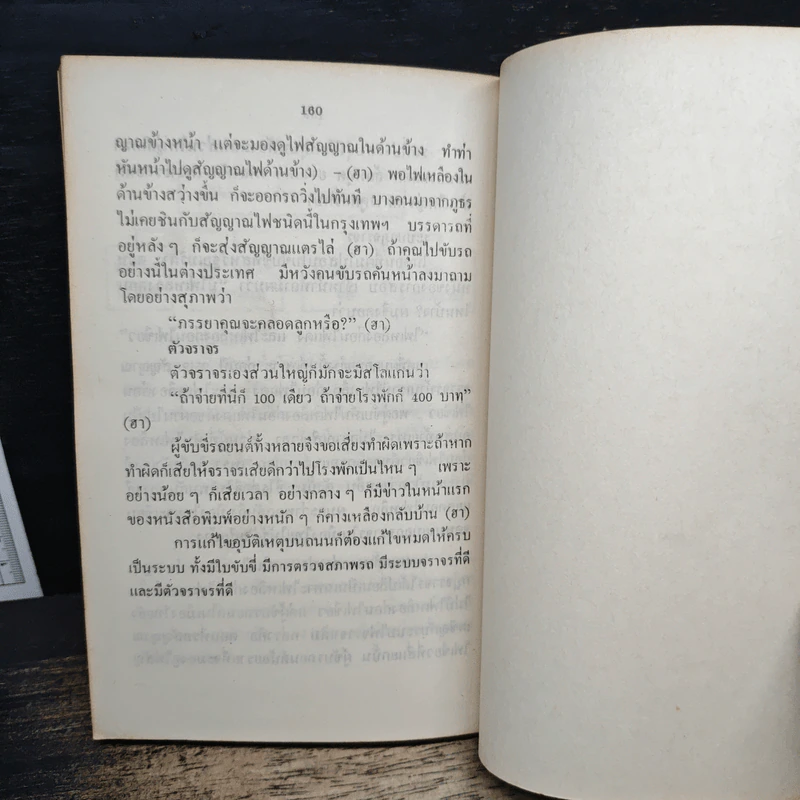 160
ญาณข้างหน้า แต่จะมองดูไฟสัญญาณในด้านข้าง ทำท่า
หันหน้าไปดูสัญญาณไฟด้านข้าง) - (ฮา) พอไฟเหลืองใน
ด้านข้างสว่างขึ้น ก็จะออกรถวิ่งไปทันที บางคนมาจากภูธร
ไม่เคยชินกับสัญญาณไฟชนิดนี้ในกรุงเทพฯ บรรดารถที่
อยู่หลัง ๆ ก็จะส่งสัญญาณแตรไล่ (ฮา) ถ้าคุณไปขับรถ
อย่างนี้ในต่างประเทศ มีหวังคนขับรถคันหน้าลงมาถาม
โดยอย่างสุภาพว่า
“ภรรยาคุณจะคลอดลูกหรือ?” (ฮา)
ตัวจราจร
ตัวจราจรเองส่วนใหญ่ก็มักจะมีสโลแกนว่า
“ถ้าจ่ายที่นี่ก็ 100 เดียว ถ้าจ่ายโรงพักก็ 400 บาท”
(ฮา)
ผู้ขับขี่รถยนต์ทั้งหลายจึงขอเสี่ยงทำผิดเพราะถ้าหาก
ทำผิดก็เสียให้จราจรเสียดีกว่าไปโรงพักเป็นไหน ๆ เพราะ
อย่างน้อย ๆ ก็เสียเวลา อย่างกลาง ๆ ก็มีข่าวในหน้าแรก
ของหนังสือพิมพ์อย่างหนัก ๆ ก็คางเหลืองกลับบ้าน (ฮา)
การแก้ไขอุบัติเหตุบนถนนก็ต้องแก้ไขหมดให้ครบ
เป็นระบบ ทั้งมีใบขับขี่ มีการตรวจสภาพรถ มีระบบจราจรที่ดี
และมีตัวจราจรที่ดี